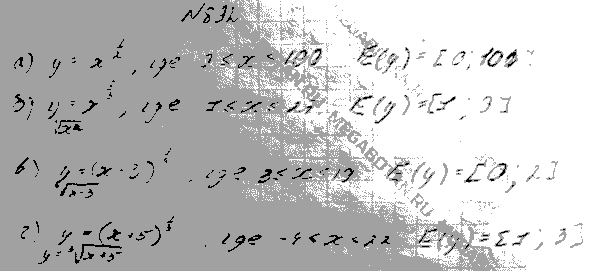 № 832
а) y = x^{1/2}, где 0 ≤ x ≤ 100 E(y) = [0; 100]
б) y = x^{1/3}, где 1 ≤ x ≤ 27 E(y) = [1; 3]
в) y = (x - 3)^{1/4}, где 3 ≤ x ≤ 19 E(y) = [0; 2]
√x-3
г) y = (x + 5)^{1/3}, где -4 ≤ x ≤ 22 E(y) = [1; 3]
y = ³√x+5
MEGABOTAN.RU